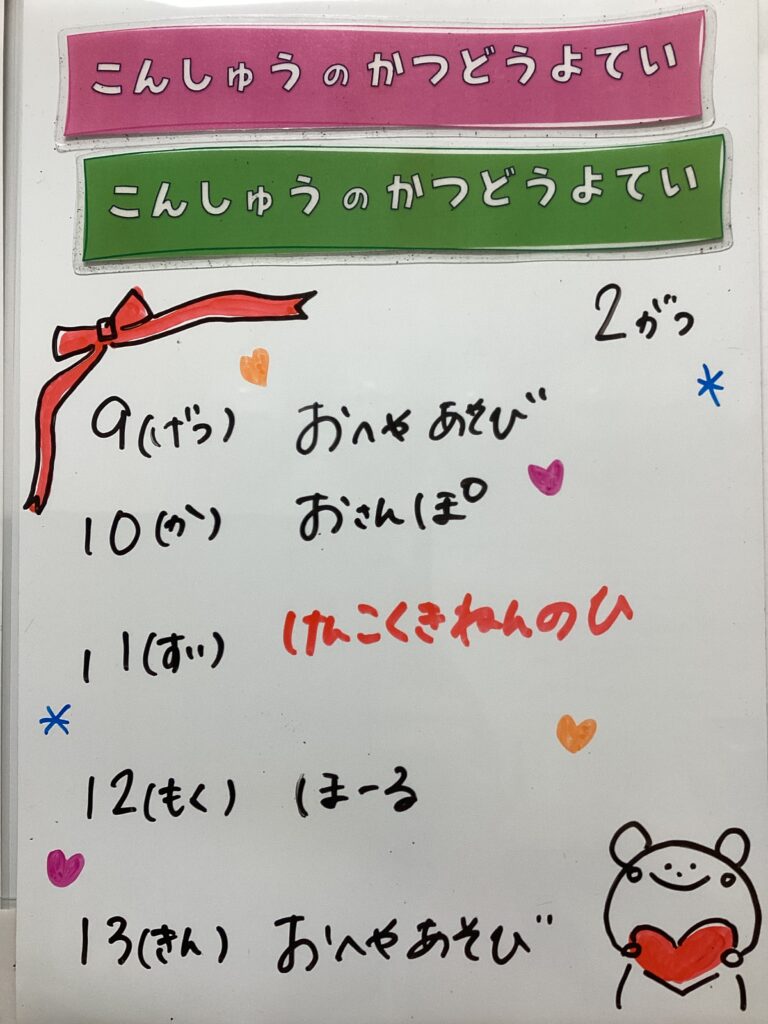 こんしゅうのかつどうよてい
こんしゅうのかつどうよてい
2がつ
9(げつ) おへやあそび
10(か) おさんぽ
11(すい) けんこくきねんのひ
12(もく) ほーる
13(きん) おへやあそび